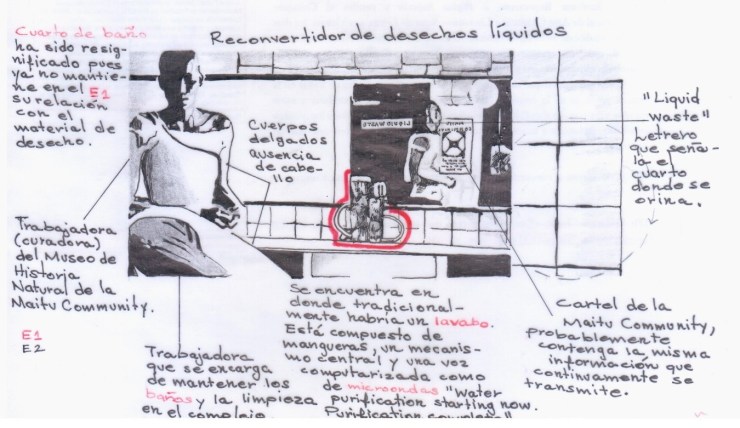 Reconvertidor de desechos líquidos
Cuarto de baño
ha sido resig-
nificado pues
ya no mantie-
ne en el E1
su relación
con el
material de
desecho.
Cuerpos
delgados
ausencia
de cabe-
llo
LIQUID WASTE
"Liquid
waste"
Letrero
que seña-
la el
cuarto
donde se
orina.
Trabajadora
(curadora)
del Museo de
Historia
Natural de la
Maitu Community.
E1
E2
Trabajadora
que se encarga
de mantener los
baños y la limpieza
en el complejo
Se encuentra en
donde tradicional-
mente habría un lavabo.
Está compuesto de
mangueras, un mecanis-
mo central y una voz
computarizada como
de microondas "Water
purification starting now.
Purification complete"
Cartel de la
Maitu Community,
probablemente
contenga la misma
información que
continuamente se
transmite.